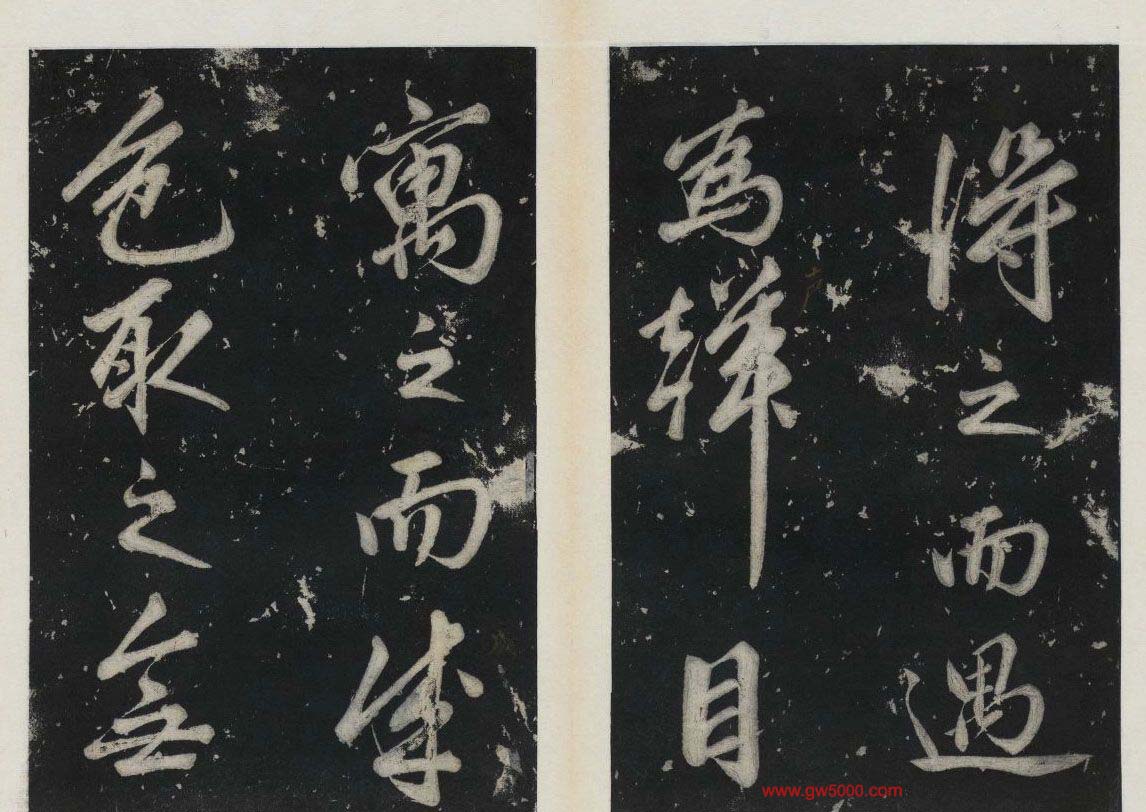 得之而遇
為聲目
寓之而成
色取之無
www.gw5000.com